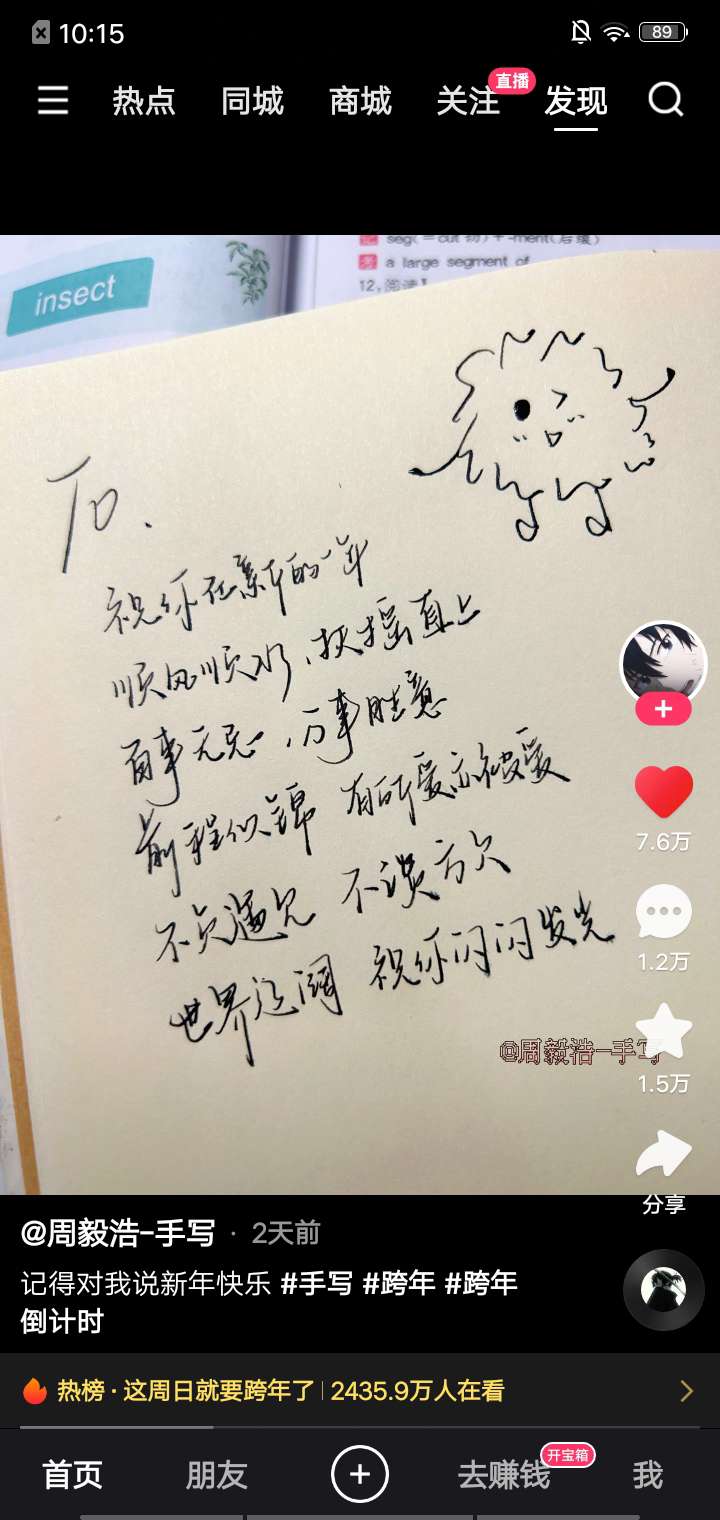 10:15
89
热点 同城 商城 关注 直播 发现
seg(=cut 切)+-ment(后缀)
a large segment of
12,阅读
insect
To.
祝你在新的一年
顺风顺水、扶摇直上
百事无忌，万事胜意
前程似锦 有所爱亦被爱
不负遇见 不谈亏欠
世界辽阔 祝你闪闪发光
@周毅浩-手写
7.6万
1.2万
1.5万
分享
@周毅浩-手写 · 2天前
记得对我说新年快乐 #手写 #跨年 #跨年
倒计时
热榜·这周日就要跨年了|2435.9万人在看
首页 朋友 去赚钱 开宝箱 我